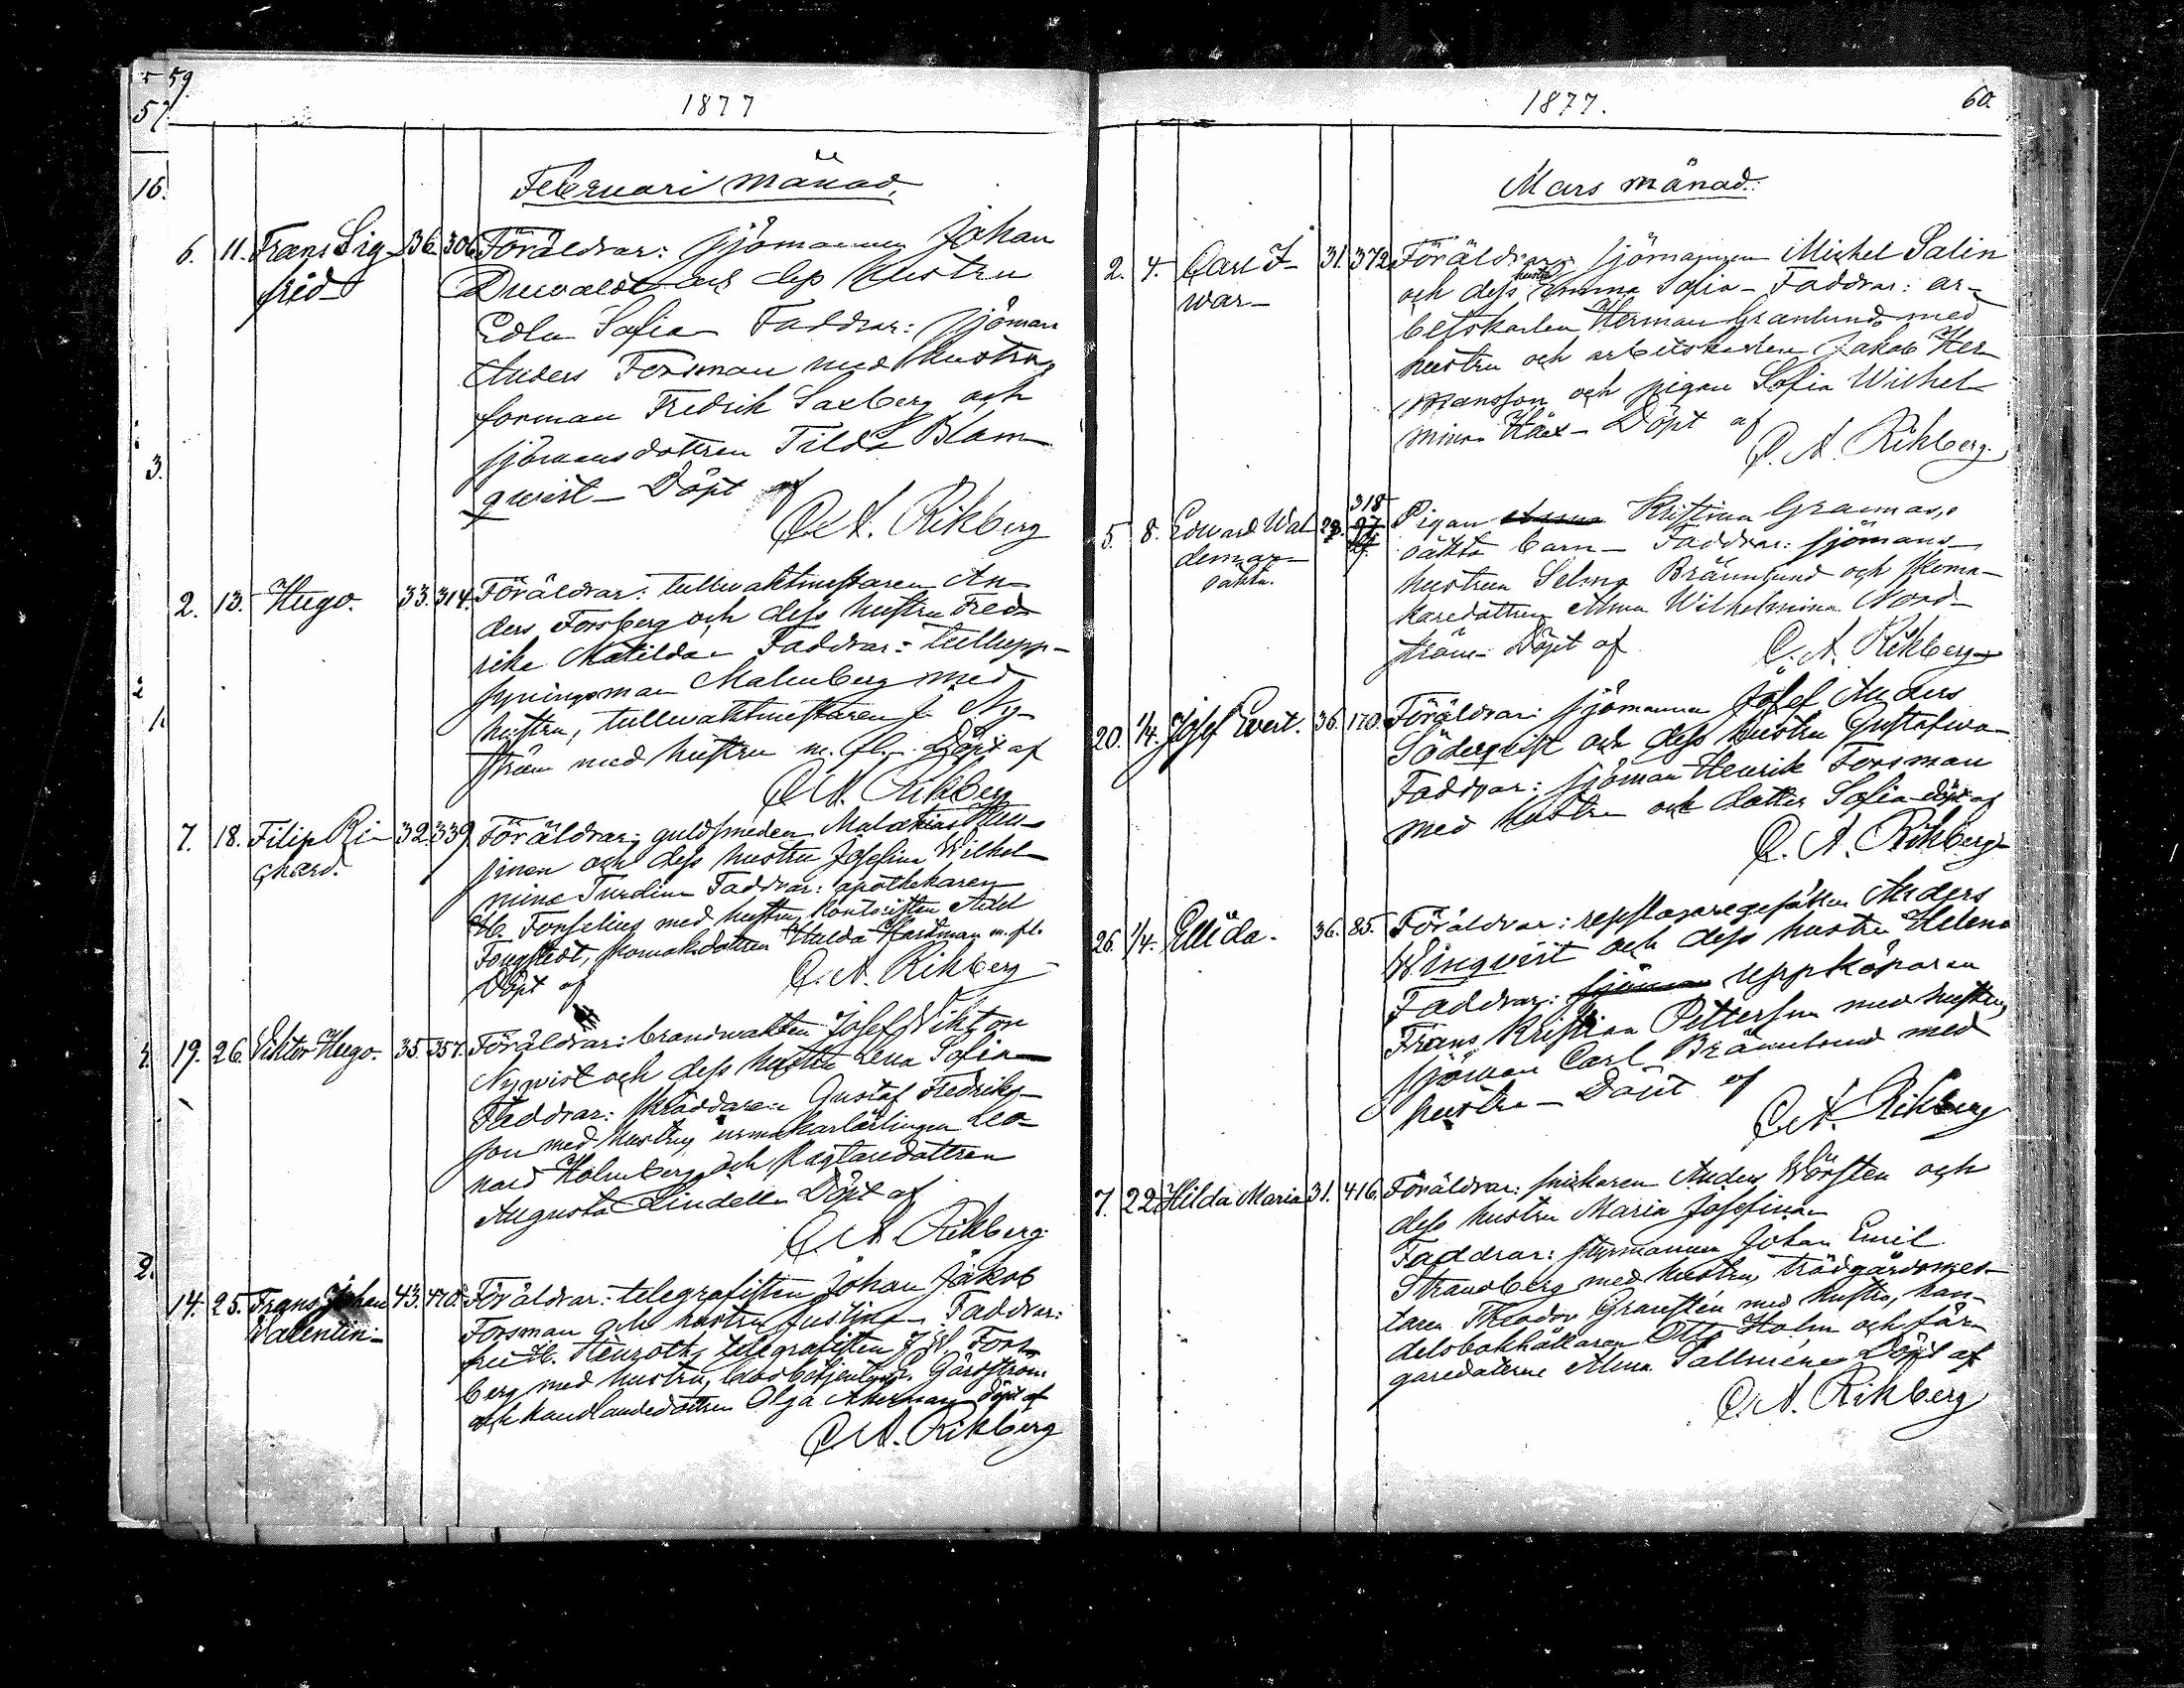 59
57.
1877
Februari månad.
16.
6. 11. Frans Sig- 36. 306. Föräldrar: sjömannen Johan
frid
och dess hustru
Edla Sofia - Faddrar: sjöman
Anders Forsman med hustru,
forman Fredrik Saxberg och
3.
sjömansdottren Tilda Blom-
qwist - Döpt af
C. A. Rikberg
2. 13. Hugo. 33. 314. Föräldrar: tullwaktmestaren An-
ders Forsberg och dess hustru Fred-
rika Matilda - Faddrar: tullupp-
syningsman Malmberg med
1.
hustru, tullwaktmestaren J. Ny-
ström med hustru m. fl. - Döpt af
C. A. Rikberg
7. 18. Filip Ri- 32. 339. Föräldrar: guldsmeden Malakias
chard.
och dess hustru Josefina Wilhel-
mina Turdin - Faddrar: apothekaren
H. Fonselius med hustru, kontoristen Axel
Hulda Hardman m. fl.
Döpt af
C. A. Rikberg
19. 26. Viktor Hugo. 35. 357. Föräldrar: brandwakten Josef Wiktor
Nyqvist och dess hustru Lena Sofia -
Faddrar: skräddaren Gustaf Fredriks-
son med hustru, urmakarlärlingen Leo-
nard Holmberg och
Augusta Lindell - Döpt af
C. A. Rikberg
2.
14. 25. Frans Johan 43. 420. Föräldrar: telegrafisten Johan Jakob
Walentin - Forsman och hustru Justina - Faddrar:
telegrafisten J. W. Fors-
berg med hustru, Gårdström
och handlandedottren Olga Åkerman - Döpt af
C. A. Rikberg
1877.
60.
Mars månad.
2. 4. Carl I- 31. 372. Föräldrar: sjömannen Michel Salin
war -
och dess hustru Emma Sofia - Faddrar: ar-
betskarlen Herman Granlund med
hustru och arbetskarlen Jakob Her-
mansson och pigan Sofia Wilhel-
mina - Döpt af
C. A. Rikberg.
318
5. 8. Edward Wal- 28. Pigan Kristina Grannas,
demar -
oäkta.
oäkta barn - Faddrar: sjömans-
hustrun Selma Brännlund och skoma-
karedottren Alma Wilhelmina Nord-
ström - Döpt af
C. A. Rikberg
20. 1/4. Josef Evert. 36. 170. Föräldrar: sjömannen Josef Anders
Söderqvist och dess hustru Gustafwa -
Faddrar: sjöman Henrik Forsman
med hustru och dotter Sofia - döpt af
C. A. Rikberg
26. 1/4. Ellida. 36. 85. Föräldrar: repslagaregesällen Anders
Winqvist och dess hustru Helena
Faddrar: sjöman uppköparen
Frans Kristian Pettersson med hustru,
sjöman Carl Brännlund med
hustru - Döpt af
C. A. Rikberg
7. 22. Hilda Maria 31. 416. Föräldrar: snickaren Anders Wörsten och
dess hustru Maria Josefina -
Faddrar: styrmannen Johan Emil
Strandberg med hustru, trädgårdsmes-
taren Theodor Granstén med hustru, han-
delsbokhållaren Otto Holm och fär-
garedottren Alma Tallmén - Döpt af
C. A. Rikberg